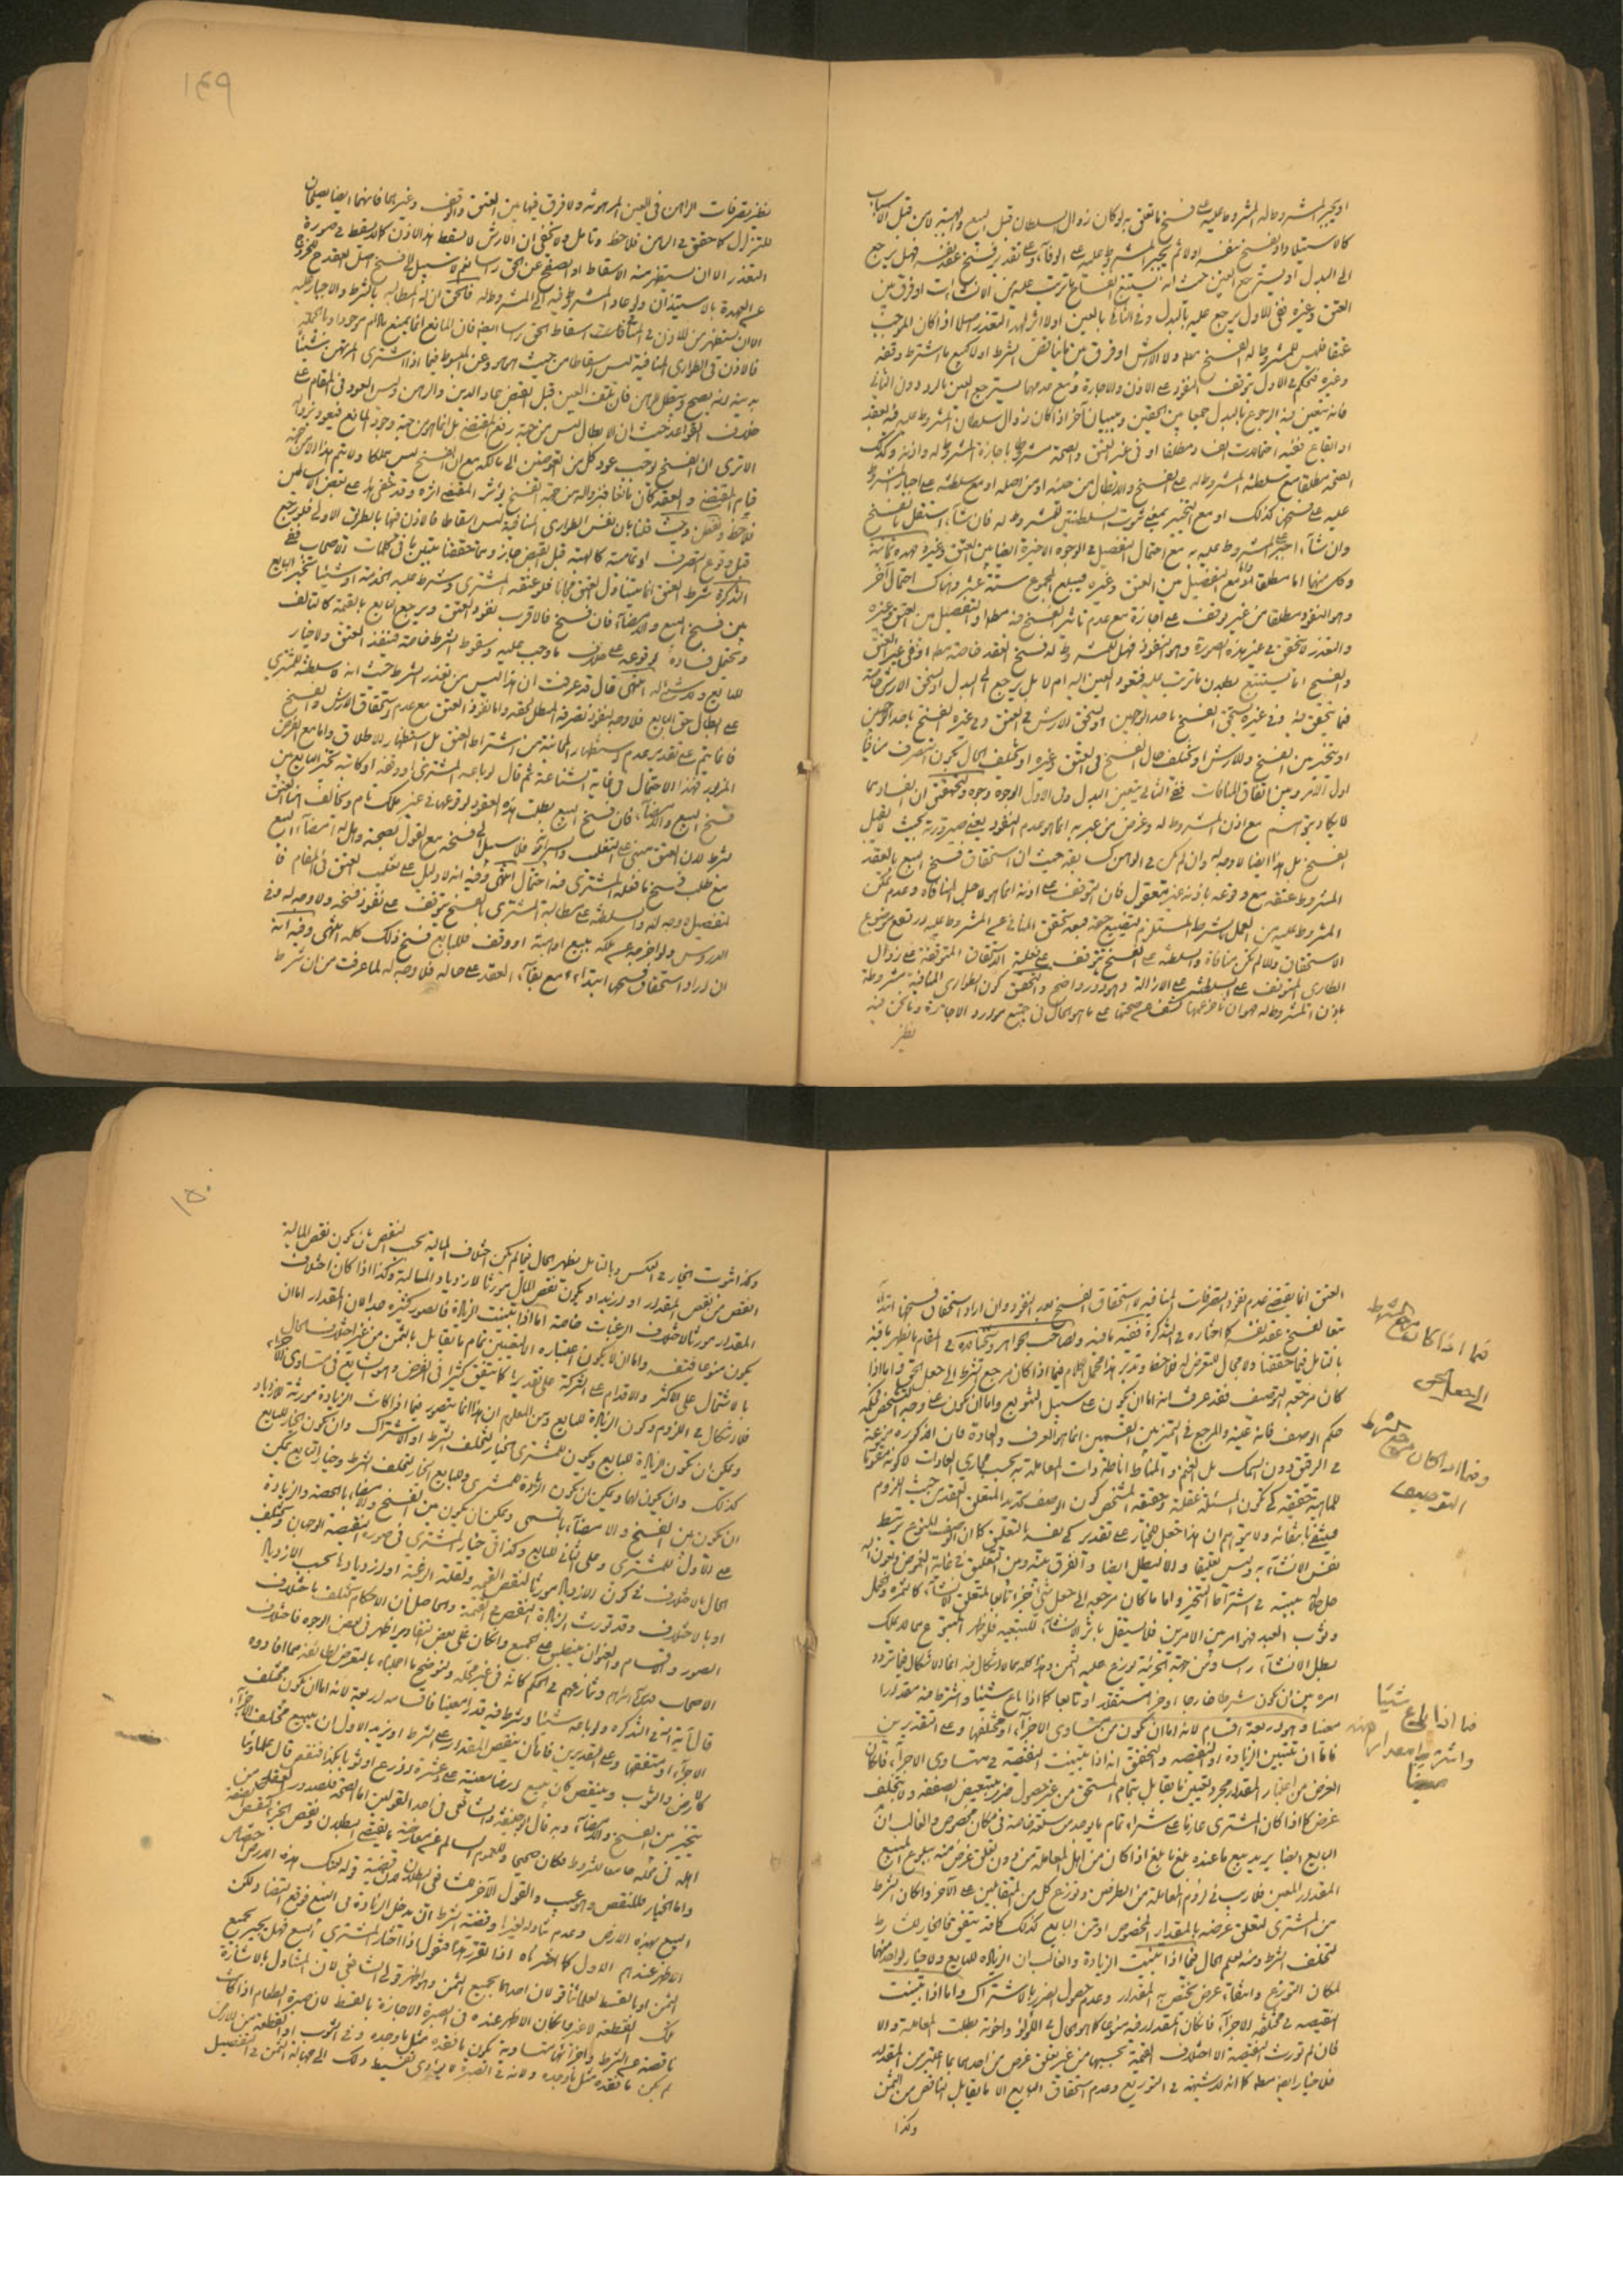 ١٤٩
او يجبر المشروط له المشروط عليه على فسخ ما تعلق به لو كان زوال السلطان قبل البيع والهبة لا من قبل الاسباب
كالاستيلاد او يفسخ بنفسه اولا ثم يجبر المشروط عليه على الوفاء وعلى تقدير فسخ عقد نفسه فهل يرجع
الى البدل او يسترجع العين حيث انه يستتبع انفساخ ما ترتب عليه من الانشاءات او فرق بين
العتق وغيره ففي الاول يرجع عليه بالبدل وفي الثاني بالعين اولا اثر لهذا التعذر اصلا اذا كان الموجب
عتقا فليس للمشروط له الفسخ ولا الارش او فرق بين ما يناقض الشرط اولا كبيع ما اشترط وقفه
وغيره فيحكم في الاول بتوقف النفوذ على الاذن والاجازة ومع عدمهما يسترجع العين بالرد دون الثاني
فانه يتعين فيه الرجوع بالبدل جمعا بين الحقين وببيان آخر اذا كان زوال سلطان المشروط عليه فيه لعقد
او ايقاع ففيه احتمالات الفساد مطلقا او في غير العتق والصحة مشروطا باجازة المشروط له واذنه وكذلك
الصحة مطلقا مع سلطنة المشروط له على الفسخ والابطال من حينه او من اصله او مع سلطنته على اجبار المشروط
عليه على فسخها كذلك او مع التخيير بمعنى ثبوت السلطنتين للمشروط له فان شاء استقل بالفسخ
وان شاء اجبر المشروط عليه به مع احتمال التفصيل في الوجوه الاخيرة ايضا بين العتق وغيره فهذه ثمانية
وكل منها اما مطلقا واما مع التفصيل بين العتق وغيره فيبلغ المجموع ستة عشر وهناك احتمال آخر
وهو النفوذ مطلقا من غير وقف على اجازة مع عدم تاثير الفسخ فيه مطلقا او التفصيل بين العتق وغيره
والتعذر لا يتحقق في غير هذه الصورة وهو النفوذ فهل للمشروط له فسخ العقد خاصة مطلقا او في غير العتق
والفسخ اما يستتبع بطلان ما ترتب عليه فتعود العين اليه ام لا بل يرجع الى البدل او يستحق الارش خاصة
فيما يتحقق فيه وفي غيره يستحق الفسخ باحد الوجهين او يستحق الارش في العتق وفي غيره الفسخ باحد الوجهين
او يتخير بين الفسخ والارش او يختلف حال الفسخ في العتق وغيره او يختلف الحال بكون التصرف منافيا
اول الامر وبين اتفاق المنافات ففي الثاني يتعين البدل وفي الاول الوجوه وجوه والتحقيق ان الفساد مما
لا يكاد يتوهم مع اذن المشروط له وغرض من عبر به انما هو عدم النفوذ يعني صيرورته بحيث لا يقبل
الفسخ بل هذا ايضا لا وجه له وان لم يكن في الرهن كسابقه حيث ان استحقاق فسخ البيع بالعقد
المشروط عتقه مع وقوعه باذنه غير معقول فان التوقف على اذنه انما هو لاجل المنافاة وعدم تمكن
المشروط عليه من العمل بالشرط المستلزم لتضييع حقه فبعد تحقق المنافي على المشروط عليه ورفع موضوع
الاستحقاق والا لم يكن منافاة والسلطنة على الفسخ تتوقف على فعلية الاستحقاق المتوقفة على زوال
الطاري المتوقف على السلطنة على الازالة وهو دور واضح والتحقيق كون الطواري المنافية مشروطة
باذن المشروط له فهو ان تاخر عنها كشف عن صحتها على ما هو الحال في جميع موارد الاجازة وما نحن فيه
نظير
نظير تصرفات الراهن في العين المرهونة ولا فرق فيها بين العتق والوقف وغيرهما فانهما ايضا يصلحان
للتزلزل كما حقق في الرهن فلاحظ وتامل ولا يخفى ان الارش لا يسقط بهذا الاذن كما لا يسقط في صورة
التعذر الا ان يستظهر منه الاسقاط او الصفح عن الحق راسا نعم لا سبيل الى فسخ اصل العقد ح لخروج
عن العهدة بالاستيذان ولو عاد المشروط فيه الى المشروط له فالحق ان له المطالبة بالشرط والاجبار عليه
الا ان يستظهر من الاذن في المنافيات اسقاط الحق راسا ايضا فان المانع انما يمنع ما دام موجودا وبالجملة
فالاذن في الطواري المنافية ليس اسقاطا من حيث هو وعن المبسوط فيما اذا اشترى المرتهن شيئا
بدينه انه يصح ويبطل الرهن فان تلف العين قبل القبض عاد الدين والرهن وليس العود في المقام على
خلاف القواعد حيث ان الابطال ليس من جهة رفع المقتضي بل انما هو من جهة وجود المانع فيعود بزواله
الا ترى ان الفسخ يوجب عود كل من العوضين الى مالكه مع ان الفسخ ليس مملكا ولا يتم هذا الا من جهة
قيام المقتضي والعقد كان مانعا فبزواله من جهة الفسخ يؤثر المقتضي اثره وقد خفي هذا على بعض الاساطين
فلاحظ وتفطن وحيث قلنا بان نفس الطواري المنافية ليس اسقاطا فالاذن فيها بالطريق الاولى فلو رجع
قبل وقوع التصرف او تمامه كالهبة قبل القبض جاز وبما حققنا يتبين ما في كلمات الاصحاب ففي
التذكرة شرط العتق انما يتناول العتق مجانا فلو اعتقه المشتري وشرط عليه الخدمة او شيئا تخير البايع
بين فسخ البيع والامضاء فان فسخ فالاقرب نفوذ العتق ويرجع البايع بالقيمة كالتالف
ويحتمل فساده لوقوعه على خلاف ما وجب عليه وسقوط الشرط خاصة فينفذ العتق ولا خيار
للبايع ولا شيء له انتهى قال قد عرفت ان هذا ليس من تعذر الشرط حيث انه لا سلطنة للمشتري
على ابطال حق البايع فلا وجه لنفوذ تصرفه المبطل لحقه واما نفوذ العتق مع عدم استحقاق الارش والفسخ
فانما يتم على تقدير عدم استظهار المجانية من اشتراط العتق بل استظهار الاطلاق واما مع الفرض
المزبور فهذا الاحتمال في غاية الشناعة ثم قال لو باعه المشتري او وقفه او كاتبه تخير البايع بين
فسخ البيع والامضاء فان فسخ البيع بطلت هذه العقود لوقوعها في غير ملك تام ويخالف هنا العتق
بشرط لان العتق مبني على التغليب والسراية فلا سبيل الى فسخه مع القول بصحته وهل له امضاء البيع
مع طلب فسخ ما فعله المشتري فيه احتمال انتهى وفيه انه لا دليل على تغليب العتق في المقام فا
لتفصيل لا وجه له والسلطنة على مطالبة المشتري بالفسخ تتوقف على نفوذ فسخه ولا وجه له وفي
الدروس ولو اخرجه عن ملكه ببيع او هبة او وقف فللبايع فسخ ذلك كله انتهى وفيه انه
ان اراد استحقاق فسخها ابتداء مع بقاء العقد على حاله فلا وجه له لما عرفت من ان شرط
١٥٠
العتق انما يقتضي عدم نفوذ التصرفات المنافية لا استحقاق الفسخ بعد النفوذ وان اراد استحقاق فسخها ابتداء
تبعا لفسخ عقد نفسه كما اختاره في التذكرة ففيه ما فيه ولصاحب الجواهر وشيخنا قده في المقام ما يظهر ما فيه
بالتامل فيما حققنا ولا مجال للتعرض له فلاحظ وتدبر هذا مجمل الكلام فيما اذا كان مرجع الشرط الى جعل الحق واما اذا
كان مرجعه التوصيف فقد عرفت انه اما ان يكون على سبيل التنويع واما ان يكون على وجه التشخص فحكمه
حكم الوصف فانه عينه والمرجع في التميز بين القسمين انما هو العرف والعادة فان الذكورة منوعة
في الرقيق دون السمك بل الغنم والمناط اناطة ذات المعاملة به بحسب مجاري العادات لا كونه مقوما
للماهية حقيقة كي تكون المسئلة عقلية وحقيقة المشخص كون الوصف كقيد المتعلق للعقد من حيث اللزوم
فينتفي بانتفائه ولا يتوهم ان هذا جعل للخيار على تقدير كي يضره التعليق كما ان الوصف المنوع يرتبط
نفس الانشاء به وليس تعليقا والا لبطل ايضا والفرق بينه وبين التعليق في غاية الغموض وبعون الله
حل جلاله بينته في اشتراط التنجيز واما ما كان مرجعه الى جعل شيء جزء تابعا لمتعلق الانشاء كالثمرة والحمل
وثوب العبد فهو امر بين الامرين فلا يستقل باثر الانشاء للتبعية فلو ظهر المتبوع مما لا يملك
بطل الانشاء راسا ومن جهة الجزئية يوزع عليه الثمن وهذا كله مما لا اشكال فيه انما الاشكال فيما تردد
امره بين ان يكون شرطا خارجا او جزء مستقلا او تابعا كما اذا باع شيئا واشترط فيه مقدارا
معينا وهو اربعة اقسام لانه اما ان يكون من متساوي الاجزاء او مختلفها وعلى التقديرين
فاما ان تتبين الزيادة او النقيصة والتحقيق انه اذا تبينت النقيصة في متساوي الاجزاء فان كان
الغرض من اعتبار المقدار مجرد تعيين ما يقابل بتمام المستحق من غير حصول ضرر بتبعيض الصفقة ولا يتخلف
غرض كما اذا كان المشتري عازما على شراء تمام ما يوجد من سلعة خاصة في مكان مخصوص والغالب ان
البايع ايضا يريد بيع ما عنده بلغ ما بلغ اذا كان من اهل المعاملة من دون تعلق غرض منه ببلوغ المبيع
المقدار المعين فلا ريب في لزوم المعاملة من الطرفين وتوزع كل من المتقابلين على الآخر وان كان الشرط
من المشتري لتعلق غرضه بالمقدار المخصوص او من البايع كذلك كما قد يتفق فالخيار للمشروط
لتخلف الشرط ومنه يعلم الحال فيما اذا تبينت الزيادة والغالب ان الزيادة للبايع ولا خيار لواحد منهما
لمكان التوزع وانتفاء غرض يختص به المقدار وعدم حصول الضرر بالاشتراك واما اذا تبينت
النقيصة في مختلفة الاجزاء فان كان المقدار فيه منوعا كما هو الحال في اللؤلؤ واخوته بطلت المعاملة والا
فان لم تورث النقيصة الا اختلاف القيمة بحسبها من غير تعلق غرض من احدهما بما اعتبر من المقدار
فلا خيار ايضا مطلقا كما انه لا شبهة في التوزيع وعدم استحقاق البايع الا ما يقابل الناقص من الثمن
وكذا
فيما اذا كان مرجع الشرط
الى جعل الحق
وفيما اذا كان مرجع الشرط
التوصيف
فيما اذا باع شيئا
واشترط فيه مقدارا
معينا
وكذا ثبوت الخيار في العكس وبالتامل يظهر الحال فيما لم يكن اختلاف المالية بحسب النقص بان يكون نقص المالية
انقص من نقص المقدار او ازيد او يكون نقص المال مورثا لازدياد المالية وكذا اذا كان اختلاف
المقدار مورثا لاختلاف الرغبات خاصة اما اذا تبينت الزيادة فالصور كثيرة جدا لان المقدار اما ان
يكون منوعا فتفسد واما ان لا يكون اعتباره الا لتعيين تمام ما يقابل بالثمن من غير اختلاف الحال
بالاشتمال على الاكثر والاقدام على الشركة على تقديرها كما يتفق كثيرا في الغرض وهو الشايع في متساوي الاجزاء
فلا اشكال في اللزوم وكون الزيادة للبايع ومن المعلوم ان هذا انما يتصور فيما اذا كانت الزيادة مورثة للازدياد
ويمكن ان تكون الزيادة للبايع ويكون للمشتري الخيار لتخلف الشرط او الاشتراك وان يكون الخيار للبايع
كذلك وان يكون لهما ويمكن ان تكون الزيادة للمشتري وللبايع الخيار لتخلف الشرط وخيار البايع يمكن
ان يكون بين الفسخ والامضاء بالمسمى ويمكن ان يكون بين الفسخ والامضاء بالحصة والزيادة
على الاول للمشتري وعلى الثاني للبايع وكذا في خيار المشتري في صورة النقيصة الوجهان ويختلف
الحال بالاختلاف في كون الازدياد مورثا لنقص القيمة ولقلة الرغبة او ازديادها بحسب الازدياد
او بالاختلاف وقد تورث الزيادة النقص في القيمة والحاصل ان الاحكام تختلف باختلاف
الصور والاقسام والعنوان ينطبق على الجميع وان كان على بعض التقادير اظهر في بعض الوجوه فاختلاف
الاصحاب قدس الله اسرارهم وتنازعهم في الحكم كانه في غير محله ولنوضح ما اجملناه بالتعرض لطائفة مما افادوه
قال آية الله في التذكره ولو باعه شيئا وشرط فيه قدرا معينا فاقسامه اربعة لانه اما ان يكون مختلف
الاجزاء او متفقها وعلى التقديرين فاما ان ينقص المقدار عن الشرط او يزيد الاول ان يبيع مختلف الاجزاء
كالارض والثوب وينقص كان يبيع ارضا معينة على انها عشرة اذرع او ثوبا كذلك فنقص قال علماؤنا
يتخير بين الفسخ والامضاء وبه قال ابو حنيفة والشافعي في احد القولين اما الصحة فلصدور العقد من
اهله في محله جامعا للشروط فكان صحيحا وللعموم السالم عن معارضة ما يقتضي البطلان ونقص الجزء كنقص الصفة
واما الخيار فللنقص وهو عيب والقول الآخر للشافعي البطلان لان قضية قوله بعتك هذه الارض اختصاص
البيع بهذه الارض وعدم تناوله لغيرها وقضية الشرط ان تدخل الزيادة في البيع فوقع التضاد ولكن
الاظهر عندهم الاول كما اخترناه اذا تقرر هذا فنقول اذا اختار المشتري البيع فهل يجيزه بجميع
الثمن او بالقسط لعلمائنا قولان احدهما بجميع الثمن وهو اظهر قولي الشافعي لان المتناول بالاشارة
تلك القطعة لا غير وان كان الاظهر عنده في الصبرة الاجازة بالقسط لان صبرة الطعام اذا كانت
ناقصة عن الشرط واجزائها متساوية يكون ما فقده مثل ما وجده وفي الثوب او القطعة من الارض
لم يكن ما فقده مثل ما وجده ولانه في الصبرة لا يؤدي تقسيط ذلك الى جهالة الثمن في التفصيل